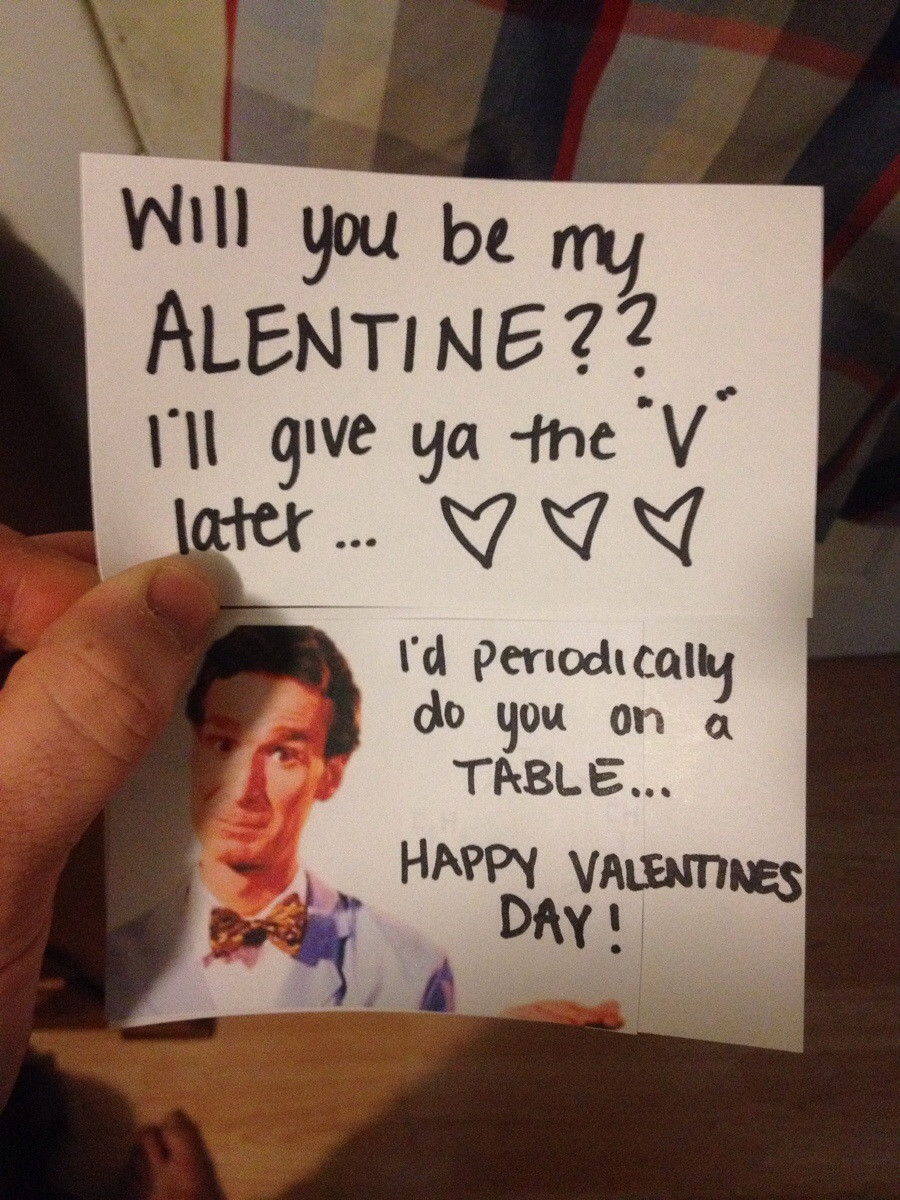 Will you be my
ALENTINE??
I'll give ya the "V"
later... ♡ ♡ ♡
I'd periodically
do you on a
TABLE...
HAPPY VALENTINES
DAY!